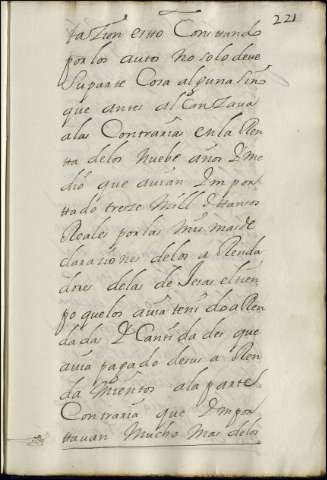 221
ta Zion estto Constando
por los autos no solo deve
Suparte Cosa alguna sino
que antes al Canzava
alas Contrarias en la Ren
tta delos Nuebe años q̃ me
dio que avian ymporttado treze Mill y ttantos
Reales por las mismas de
clarazio nes delos a Renda
dores delas de Jesas el tiem
po quelos avia teni do a Ren
dadas y Canti da des que
avia pagado desus a Ren
da mientos ala parte
Contraria que ympor
ttavan Mucho Mas delos